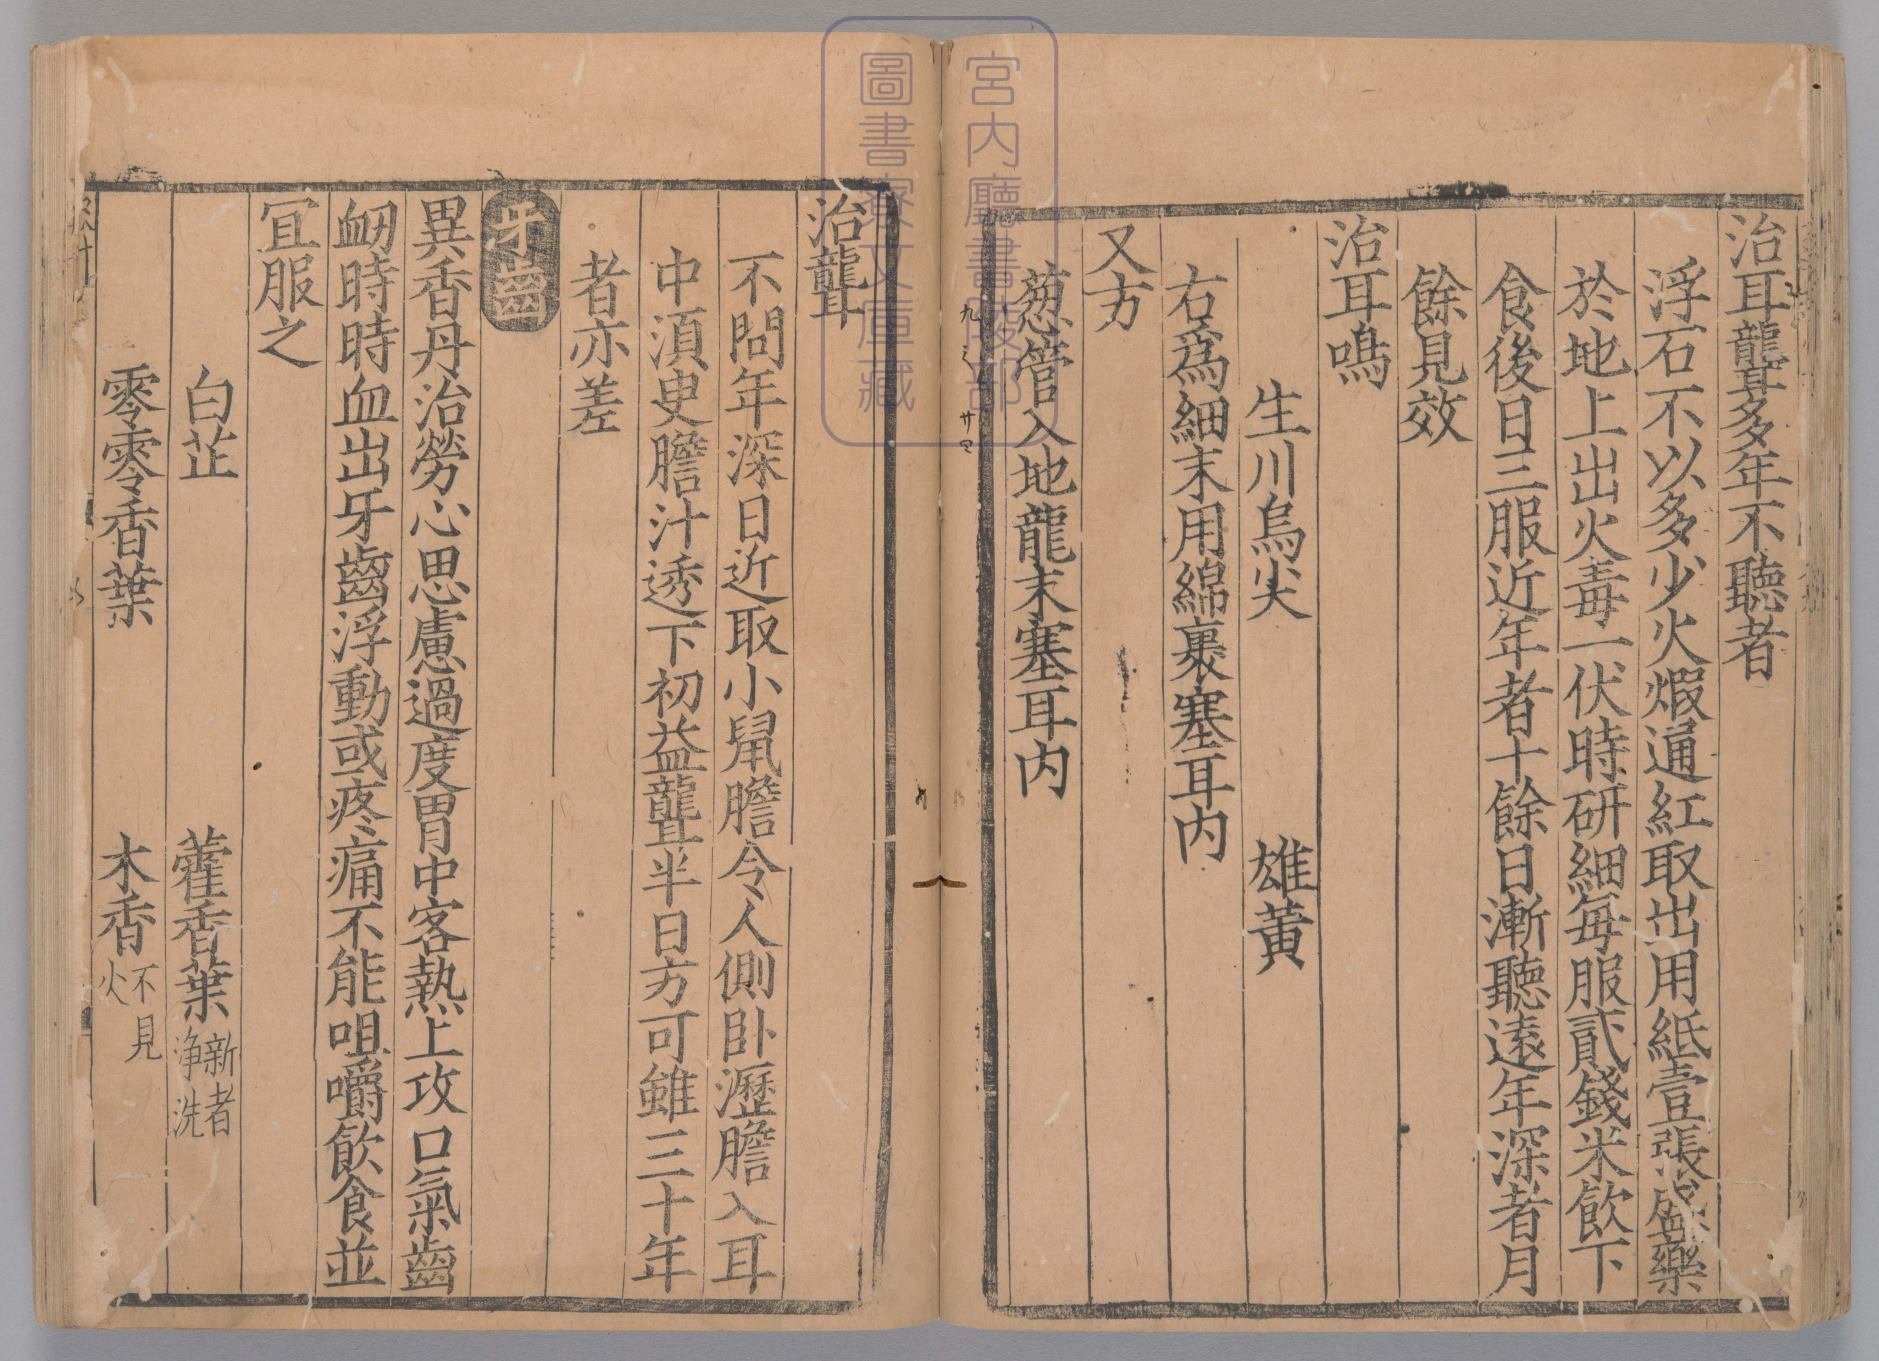 治耳聾多年不聽者
浮石不以多少火煆通紅取出用紙壹張盛藥
於地上出火毒一伏時研細每服貳錢米飲下
食後日三服近年者十餘日漸聽遠年深者月
餘見效
治耳鳴
生川烏尖 雄黃
右爲細末用綿裹塞耳内
又方
葱管入地龍末塞耳内
九之 廿四
宮内廳書陵部
圖書寮文庫藏
治聾耳
不問年深日近取小鼠膽令人側卧瀝膽入耳
中湏史膽汁透下初益聾半日方可雖三十年
者亦差
牙齒
異香丹治勞心思慮過度胃中客熱上攻口氣齒
衂時時血出牙齒浮動或疼痛不能咀嚼飲食並
冝服之
白芷 藿香葉新者净洗
零零香葉 木香不見火